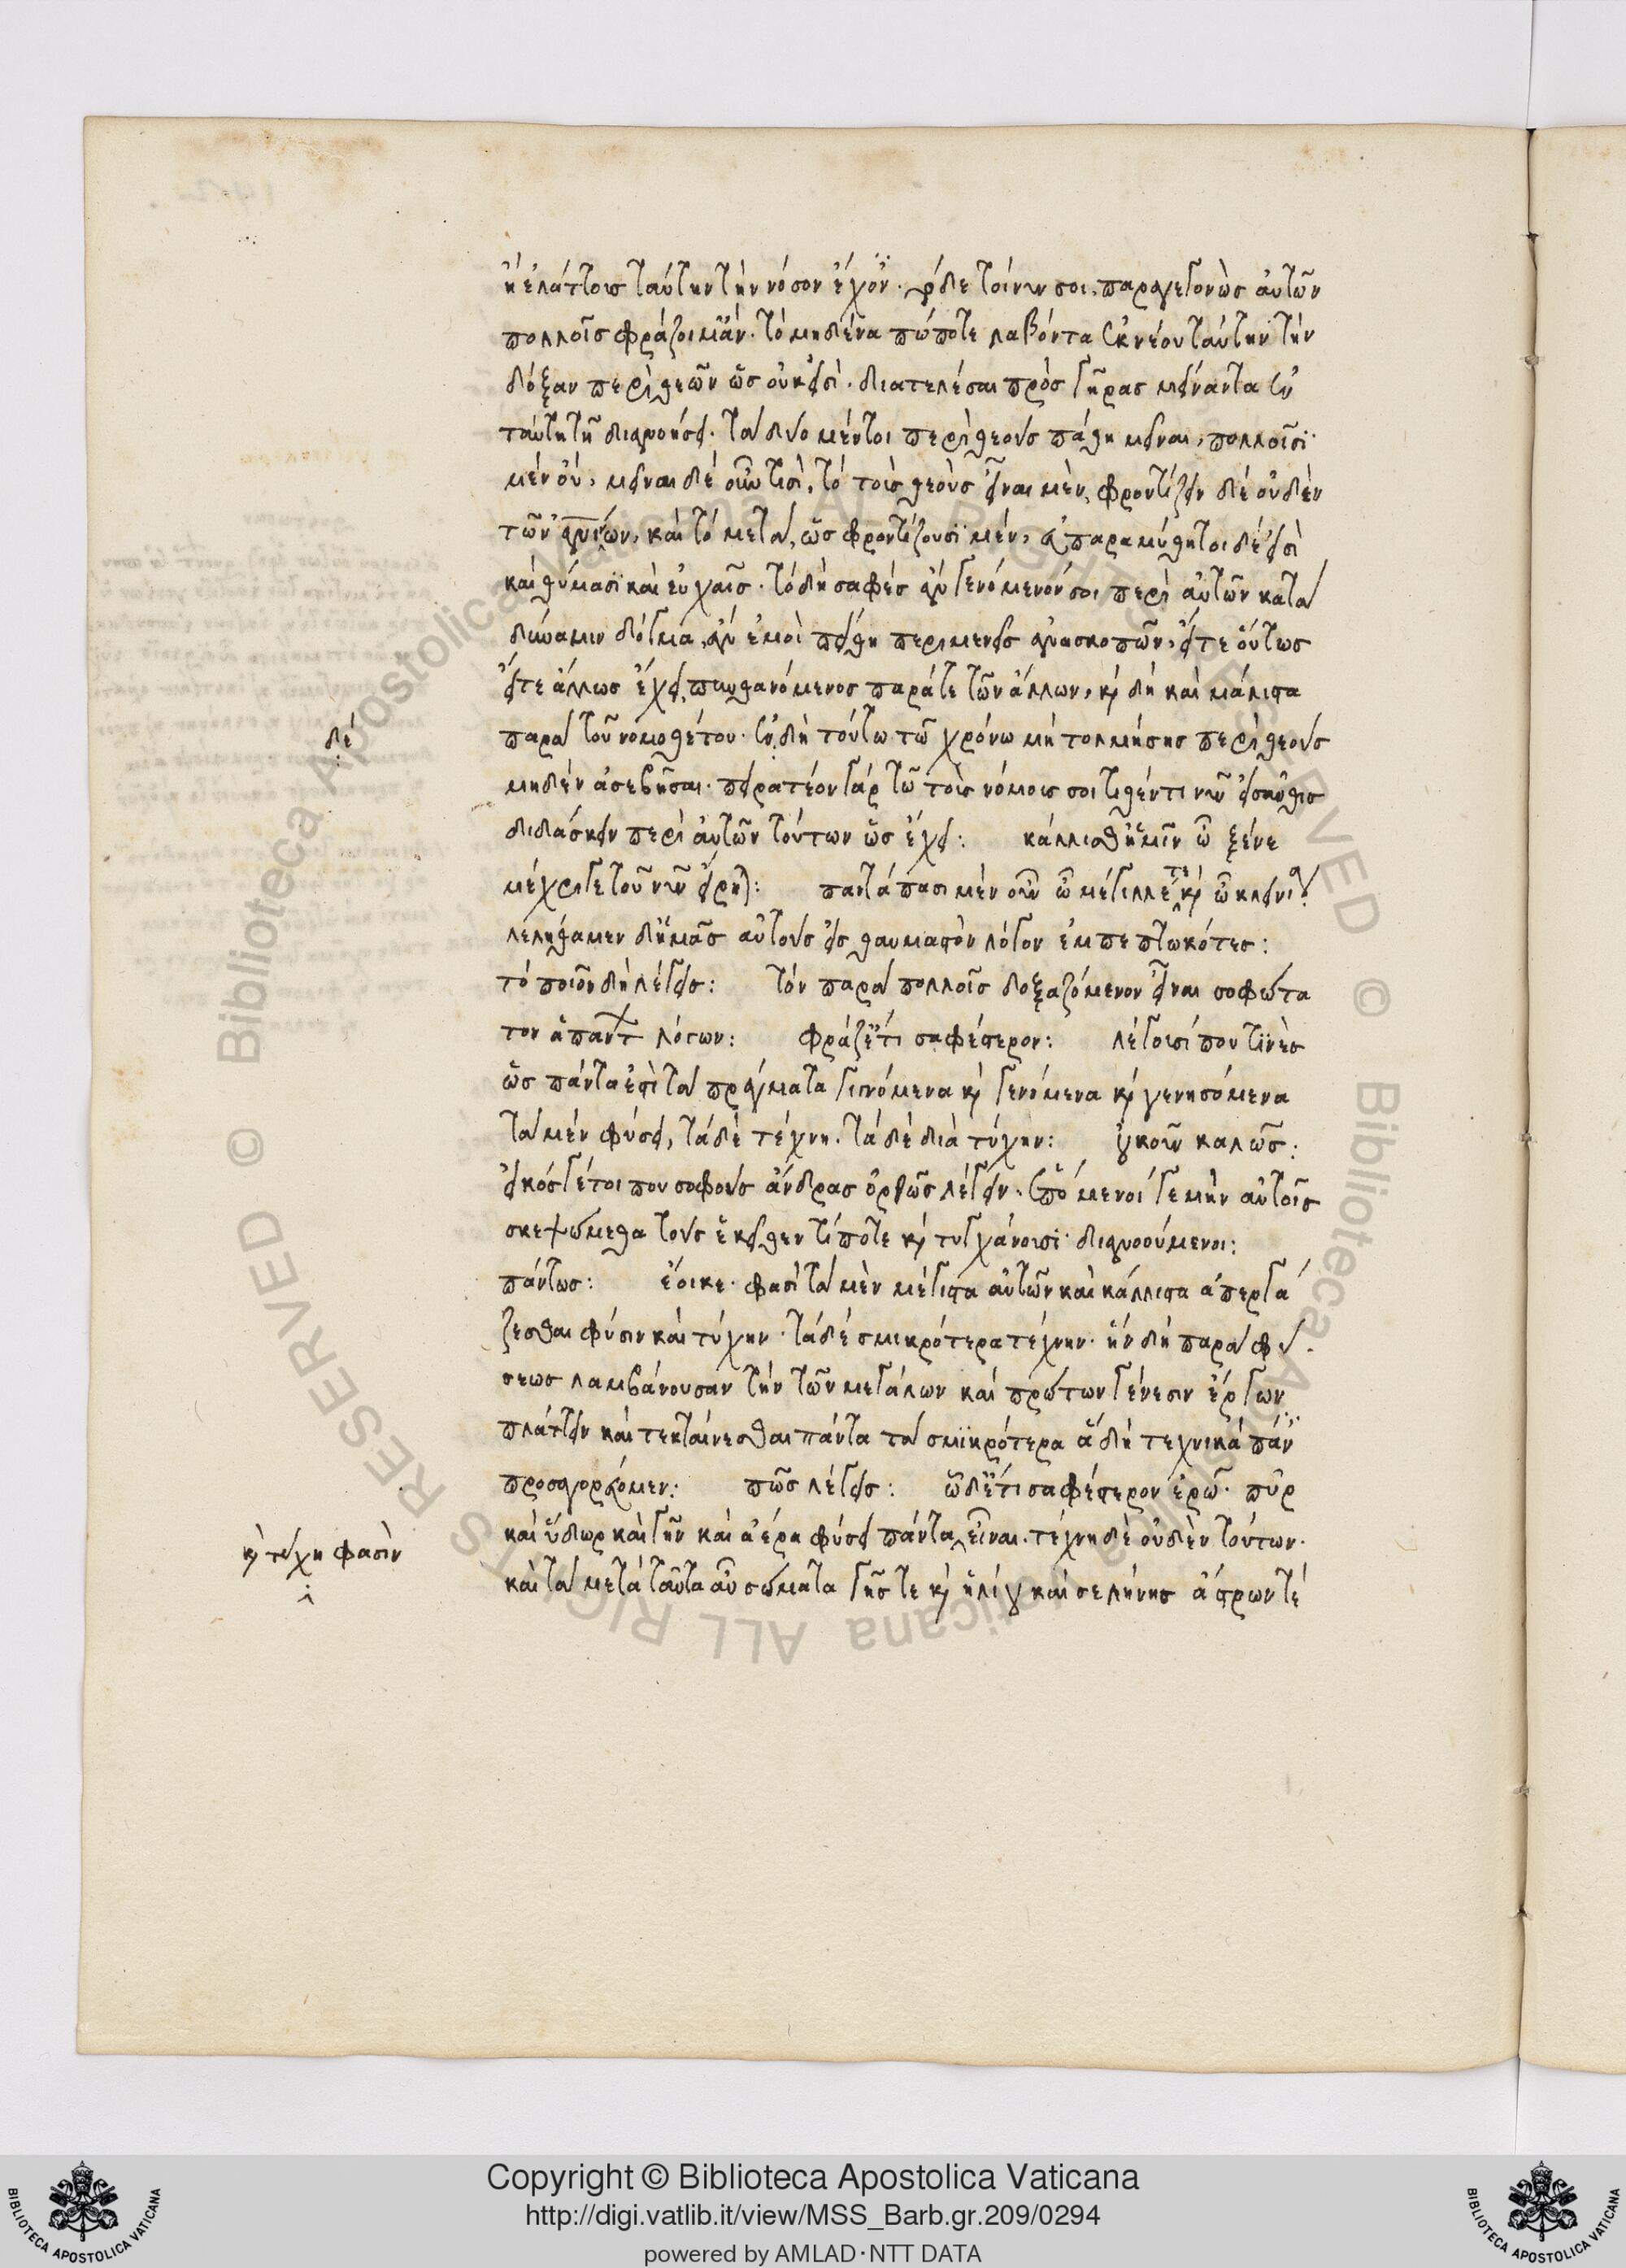 ἢ ἐλάττους ταύτην τὴν νόσον ἔχοντες. τόδε τοίνυν σοι, παραγεγονὼς αὐτῶν
πολλοῖς φράζοιμ' ἄν. τὸ μηδένα πώποτε λαβόντα ἐκ νέου ταύτην τὴν
δόξαν περὶ θεῶν ὡς οὐκ εἰσὶ. διατελέσαι πρὸς γῆρας μείναντα ἐν
ταύτη τῆ διανοήσει. τὰ δύο μέντοι περὶ θεοὺς πάθη μεῖναι, πολλοῖσι
μὲν οὔ, μεῖναι δέ οὖν τισὶ, τὸ τοὺς θεοὺς εἶναι μὲν, φροντίζειν δὲ οὐδὲν
τῶν ἀνθρωπίνων, καὶ τὸ μετὰ, ὡς φροντίζουσι μέν, εὐπαραμύθητοι δέ εἰσὶ
καὶ θύμασι καὶ εὐχαῖς. τὸ δὴ σαφὲς ἂν γενόμενόν σοι περὶ αὐτῶν κατὰ
δύναμιν δόγμα, ἂν ἐμοὶ πείθη περιμενεῖς ἀνασκοπῶν, εἴτε οὕτως
εἴτε ἄλλως ἔχει, πυνθανόμενος παρά τε τῶν ἄλλων, κ δὴ καὶ μάλιστα
παρὰ τοῦ νομοθέτου. ἐν δὴ τούτω τῶ χρόνω μὴ τολμήσης περὶ θεοὺς
δέ
μηδὲν ἀσεβῆσαι. πειρατέον γὰρ τῶ τοὺς νόμους σοι τιθέντι νῦν εἰσαῦθις
διδάσκειν περὶ αὐτῶν τούτων ὡς ἔχει: κάλλισθ' ἡμῖν ὦ ξένε
μέχρι γε τοῦ νῦν εἴρηται: παντάπασι μὲν οὖν ὦ μέγιλλέ τε κ ὦ κλεινία
λελήθαμεν δ' ἡμᾶς αὐτοὺς εἰς θαυμαστὸν λόγον ἐμπεπτωκότες:
τὸ ποῖον δὴ λέγεις: τὸν παρὰ πολλοῖς δοξαζόμενον εἶναι σοφώτα
τον ἁπάντων λόγων: φράζ' ἔτι σαφέστερον: λέγουσί που τινὲς
ὡς πάντα ἐστὶ τὰ πράγματα γιγνόμενα κ γενόμενα κ γενησόμενα
τὰ μὲν φύσει, τὰ δὲ τέχνη. τὰ δὲ διὰ τύχην: οὐκοῦν καλῶς:
εἰκός γέ τοι που σοφοὺς ἄνδρας ὀρθῶς λέγειν. ἑπόμενοί γε μὴν αὐτοῖς
σκεψώμεθα τοὺς ἐκεῖθεν τί ποτε κ τυγχάνουσι διανοούμενοι:
πάντως: ἔοικε. φασὶ τὰ μὲν μέγιστα αὐτῶν καὶ κάλλιστα ἀπεργά
ζεσθαι φύσιν καὶ τύχην. τὰ δὲ σμικρότερα τέχνην. ἣν δὴ παρὰ φύ
σεως λαμβάνουσαν τὴν τῶν μεγάλων καὶ πρώτων γένεσιν ἔργων
πλάττειν καὶ τεκταίνεσθαι πάντα τὰ σμικρότερα ἃ δὴ τεχνικὰ πάντες
προσαγορεύομεν: πῶς λέγεις: ὧδ' ἔτι σαφέστερον ἐρῶ. πῦρ
καὶ ὕδωρ καὶ γῆν καὶ ἀέρα φύσει πάντα εἶναι. τέχνη δὲ οὐδὲν τούτων.
κ τύχη φασὶν
καὶ τὰ μετὰ ταῦτα αὖ σώματα γῆς τε κ ἡλίου καὶ σελήνης ἄστρων τέ
Copyright © Biblioteca Apostolica Vaticana
http://digi.vatlib.it/view/MSS_Barb.gr.209/0294
powered by AMLAD·NTT DATA